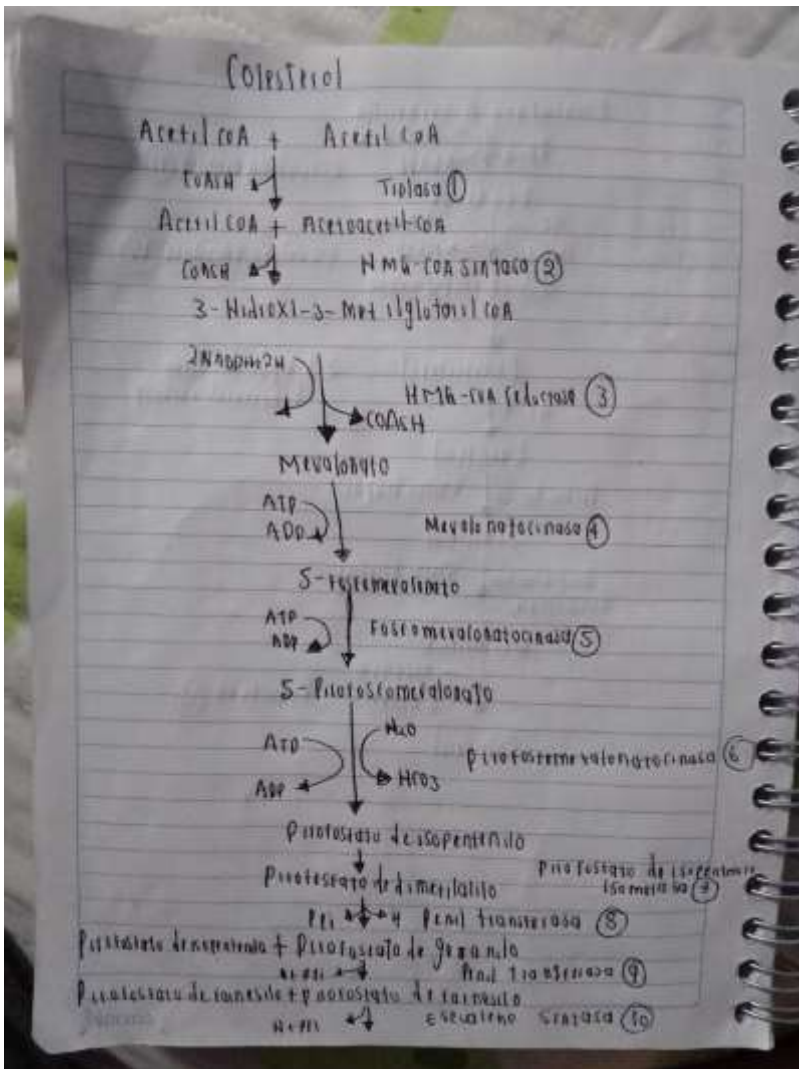 Colesterol
Acetil coA + Acetil CoA
CoASH Tiolasa ①
Acetil CoA + Acetoacetil-coA
CoASH HMG-COA SINTASA ②
3-Hidroxi-3-Metilglutaril coA
2NADPH+2H
HMG-COA reductasa ③
COASH
Mevalonato
ATP
ADP Mevalonatocinasa ④
5-Fosfomevalonato
ATP
ADP Fosfomevalonatocinasa ⑤
5-Pirofosfomevalonato
ATP H2O
Pirofosfomevalonatocinasa ⑥
ADP HCO3
Pirofosfato de isopentenilo
Pirofosfato de
Pirofosfato de dimetilalilo isomerasa ⑦
PPi H Penil transferasa ⑧
+ Pirofosfato de geranilo
⑨
Pirofosfato de farnesilo + pirofosfato de farnesilo
H+PPi Escualeno Sintasa ⑩